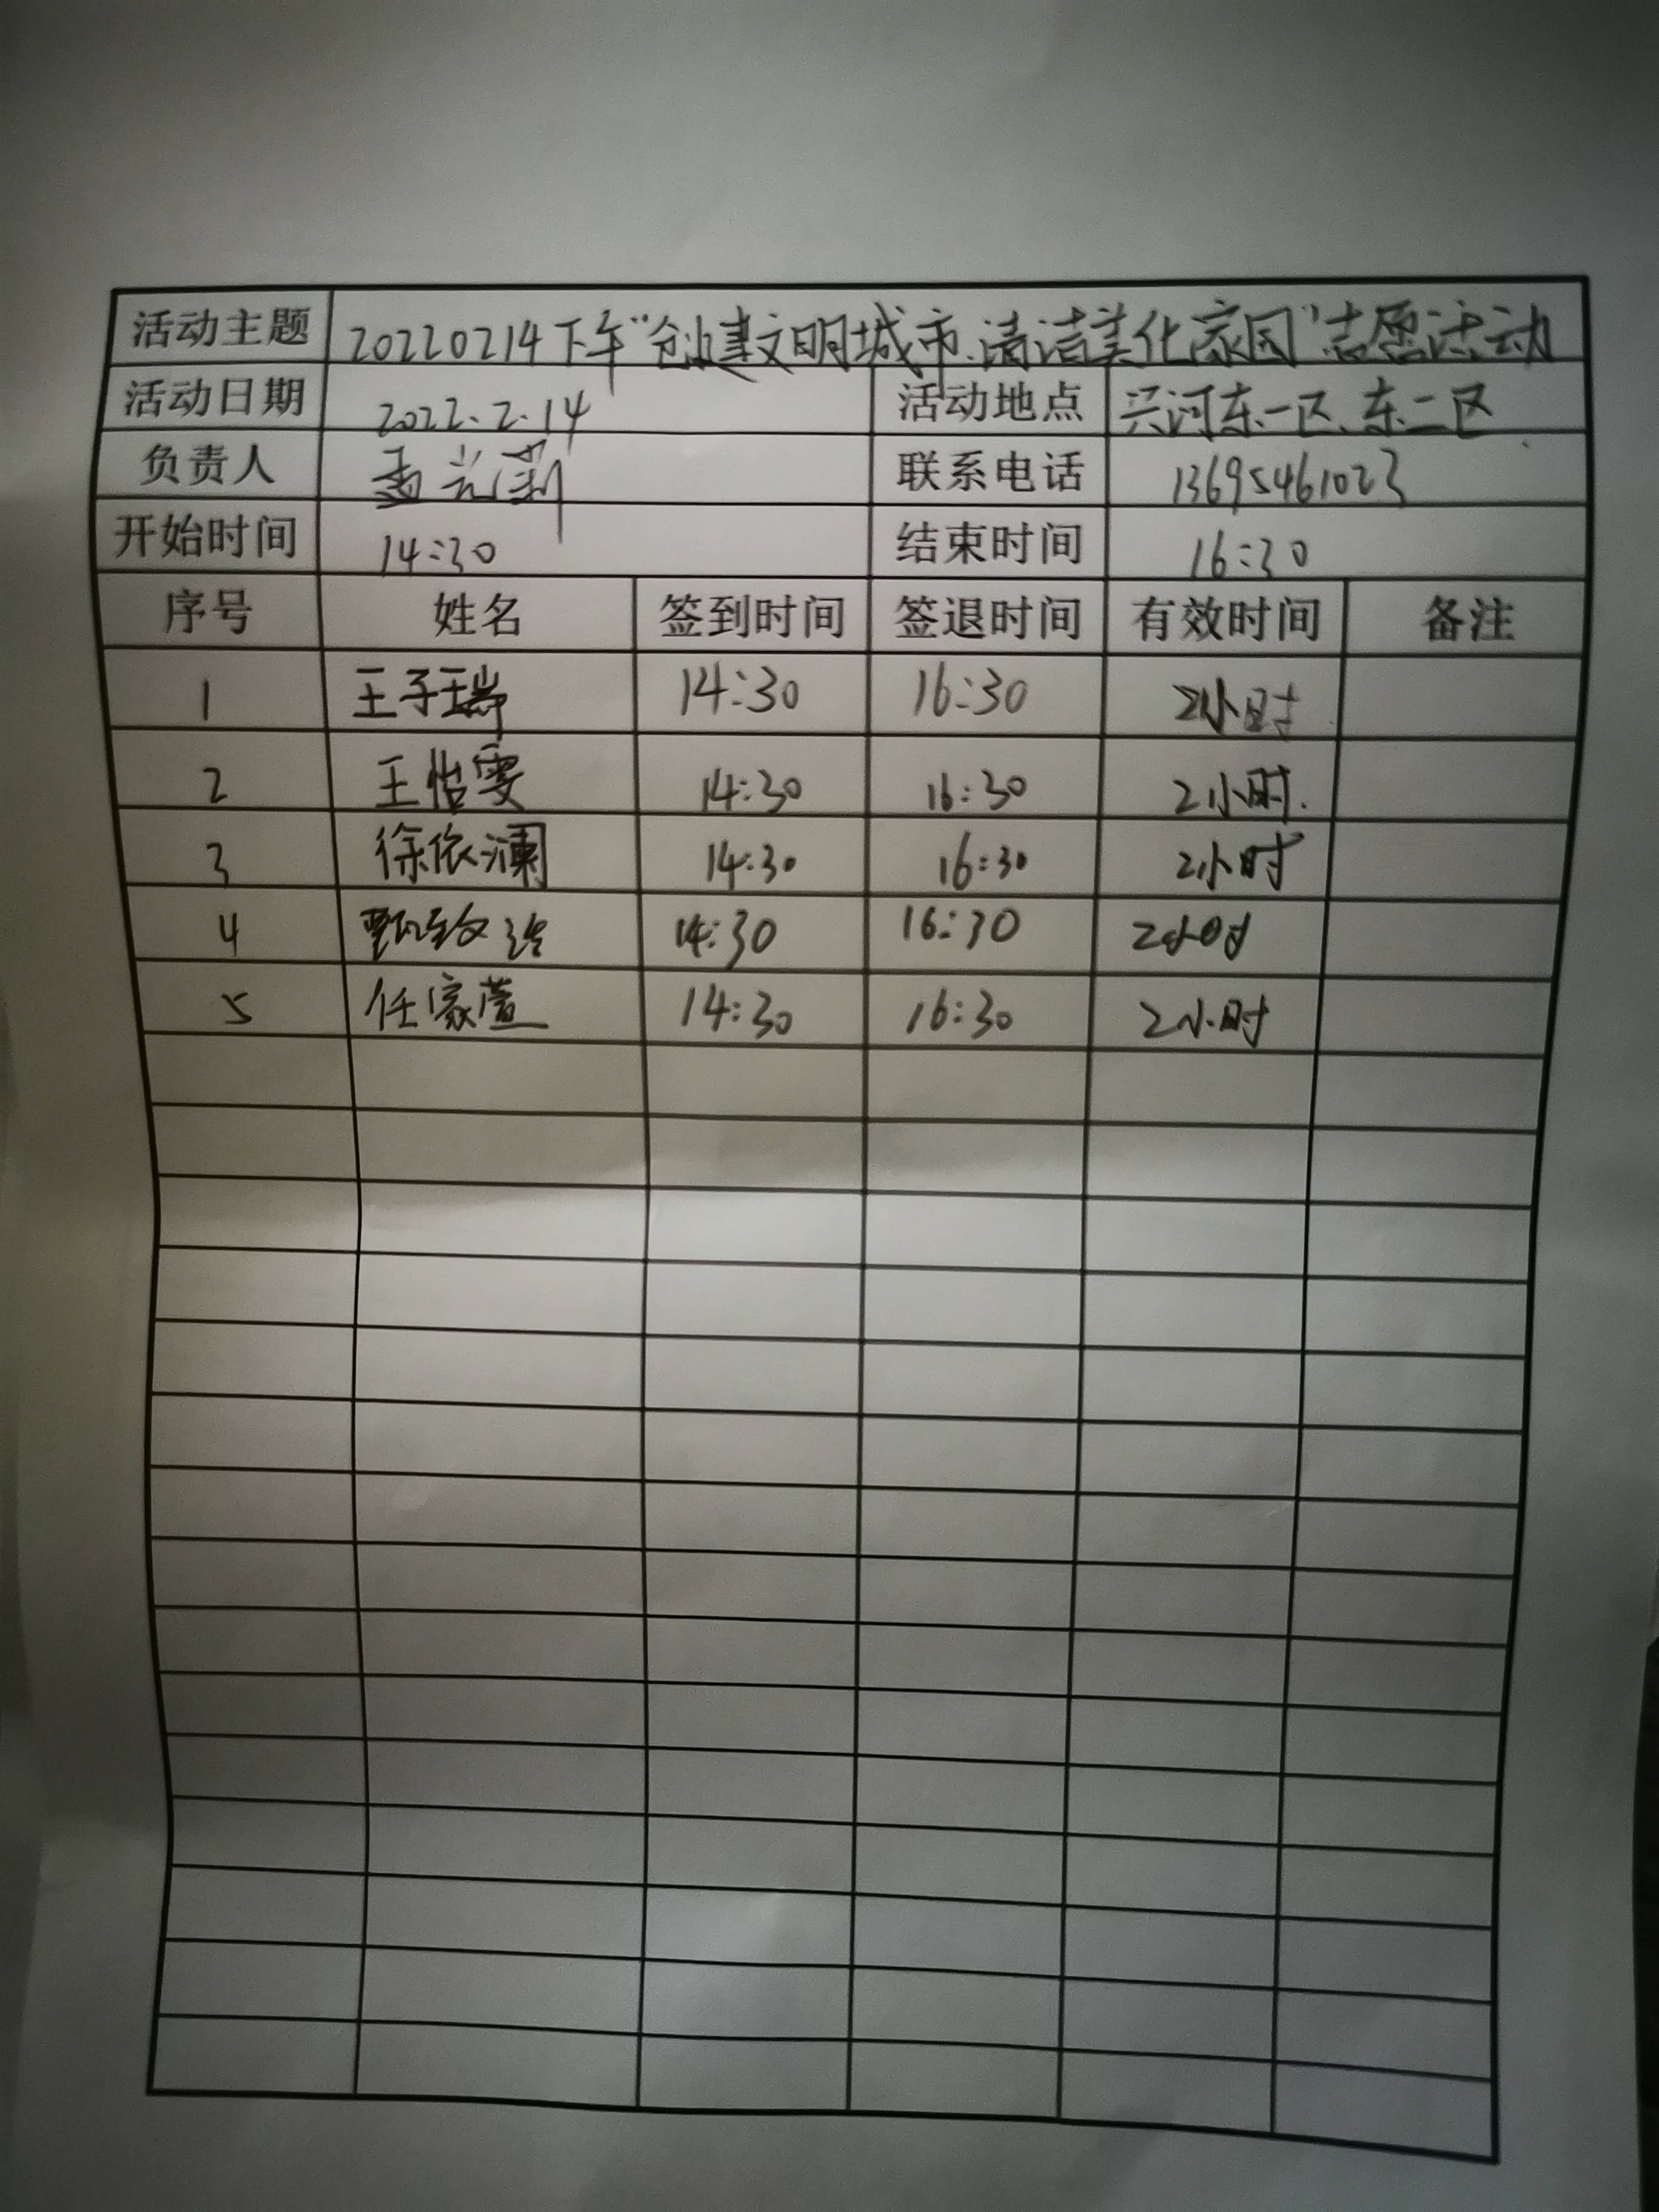 活动主题 20220214下午“创建文明城市、清洁美化家园”志愿活动
活动日期 2022.2.14 活动地点 兴河东一区、东二区
负责人 孟兰莉 联系电话 13695461023
开始时间 14:30 结束时间 16:30
序号 姓名 签到时间 签退时间 有效时间 备注
1 王子瑞 14:30 16:30 2小时
2 王怡雯 14:30 16:30 2小时.
3 徐依澜 14:30 16:30 2小时
4 14:30 16:30 2小时
5 任家萱 14:30 16:30 2小时